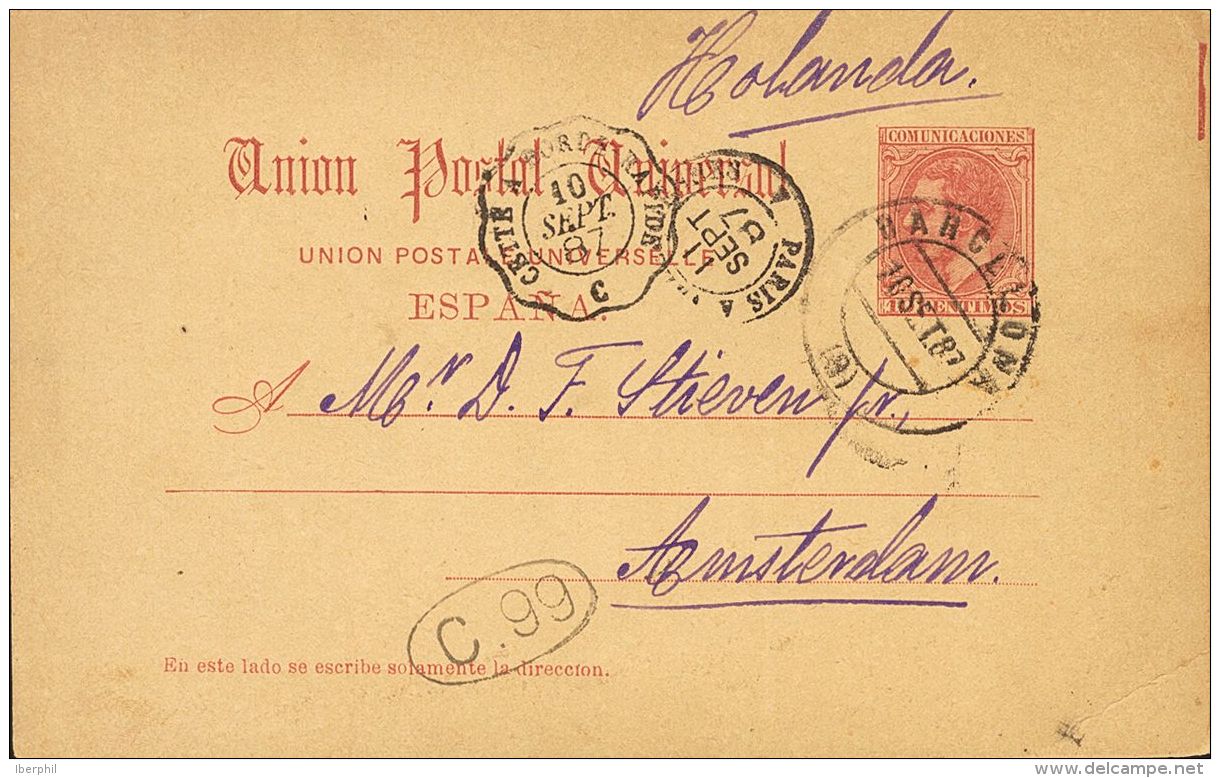 Holanda.
Union Postal Universal
COMUNICACIONES
CETTE A BORD RAPIDE
10
SEPT.
87
C
PARIS A
1
SEPT
87
BARCELONA
10 SET.87
(8)
UNION POSTALE UNIVERSELLE
ESPAÑA.
10 CENTIMOS
A Mr. D. F. Stieven jr.,
Amsterdam.
C.99
En este lado se escribe solamente la direccion.
Iberphil
delcampe.net